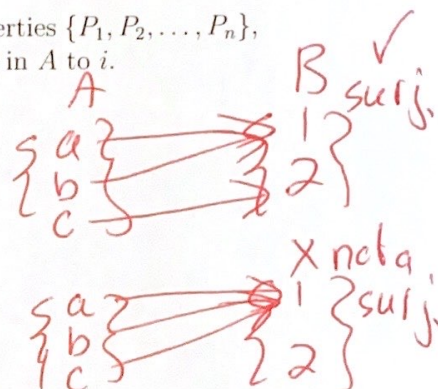 erties {P₁, P₂, . . . , Pₙ},
in A to i.
A B ✓
surj.
{ a } { 1 }
{ b } { 2 }
{ c }
X not a
surj.
{ a } { 1 }
{ b } { 2 }
{ c }